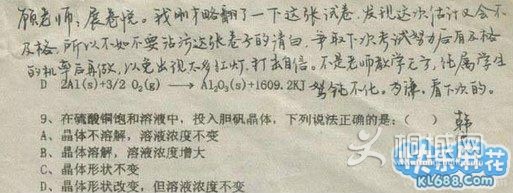 顾老师：展卷悦。我刚才略翻了一下这张试卷，发现这次估计又会不
及格，所以不如不要沾污这张卷子的清白，争取下次考试努力后有及格
的机率后再做，以免出现太多红灯，打击自信。不是老师教学无方，纯属学生
D 2Al(s)+3/2 O₂(g) ⟶ Al₂O₃(s)+1609.2KJ 驽钝不化。为谦，看下次的。
9、在硫酸铜饱和溶液中，投入胆矾晶体，下列说法正确的是：（ ） 韩
A、晶体不溶解，溶液浓度不变
B、晶体溶解，溶液浓度增大
C、晶体形状不变
D、晶体形状改变，但溶液浓度不变
桐城网
快乐麻花
KL688.COM